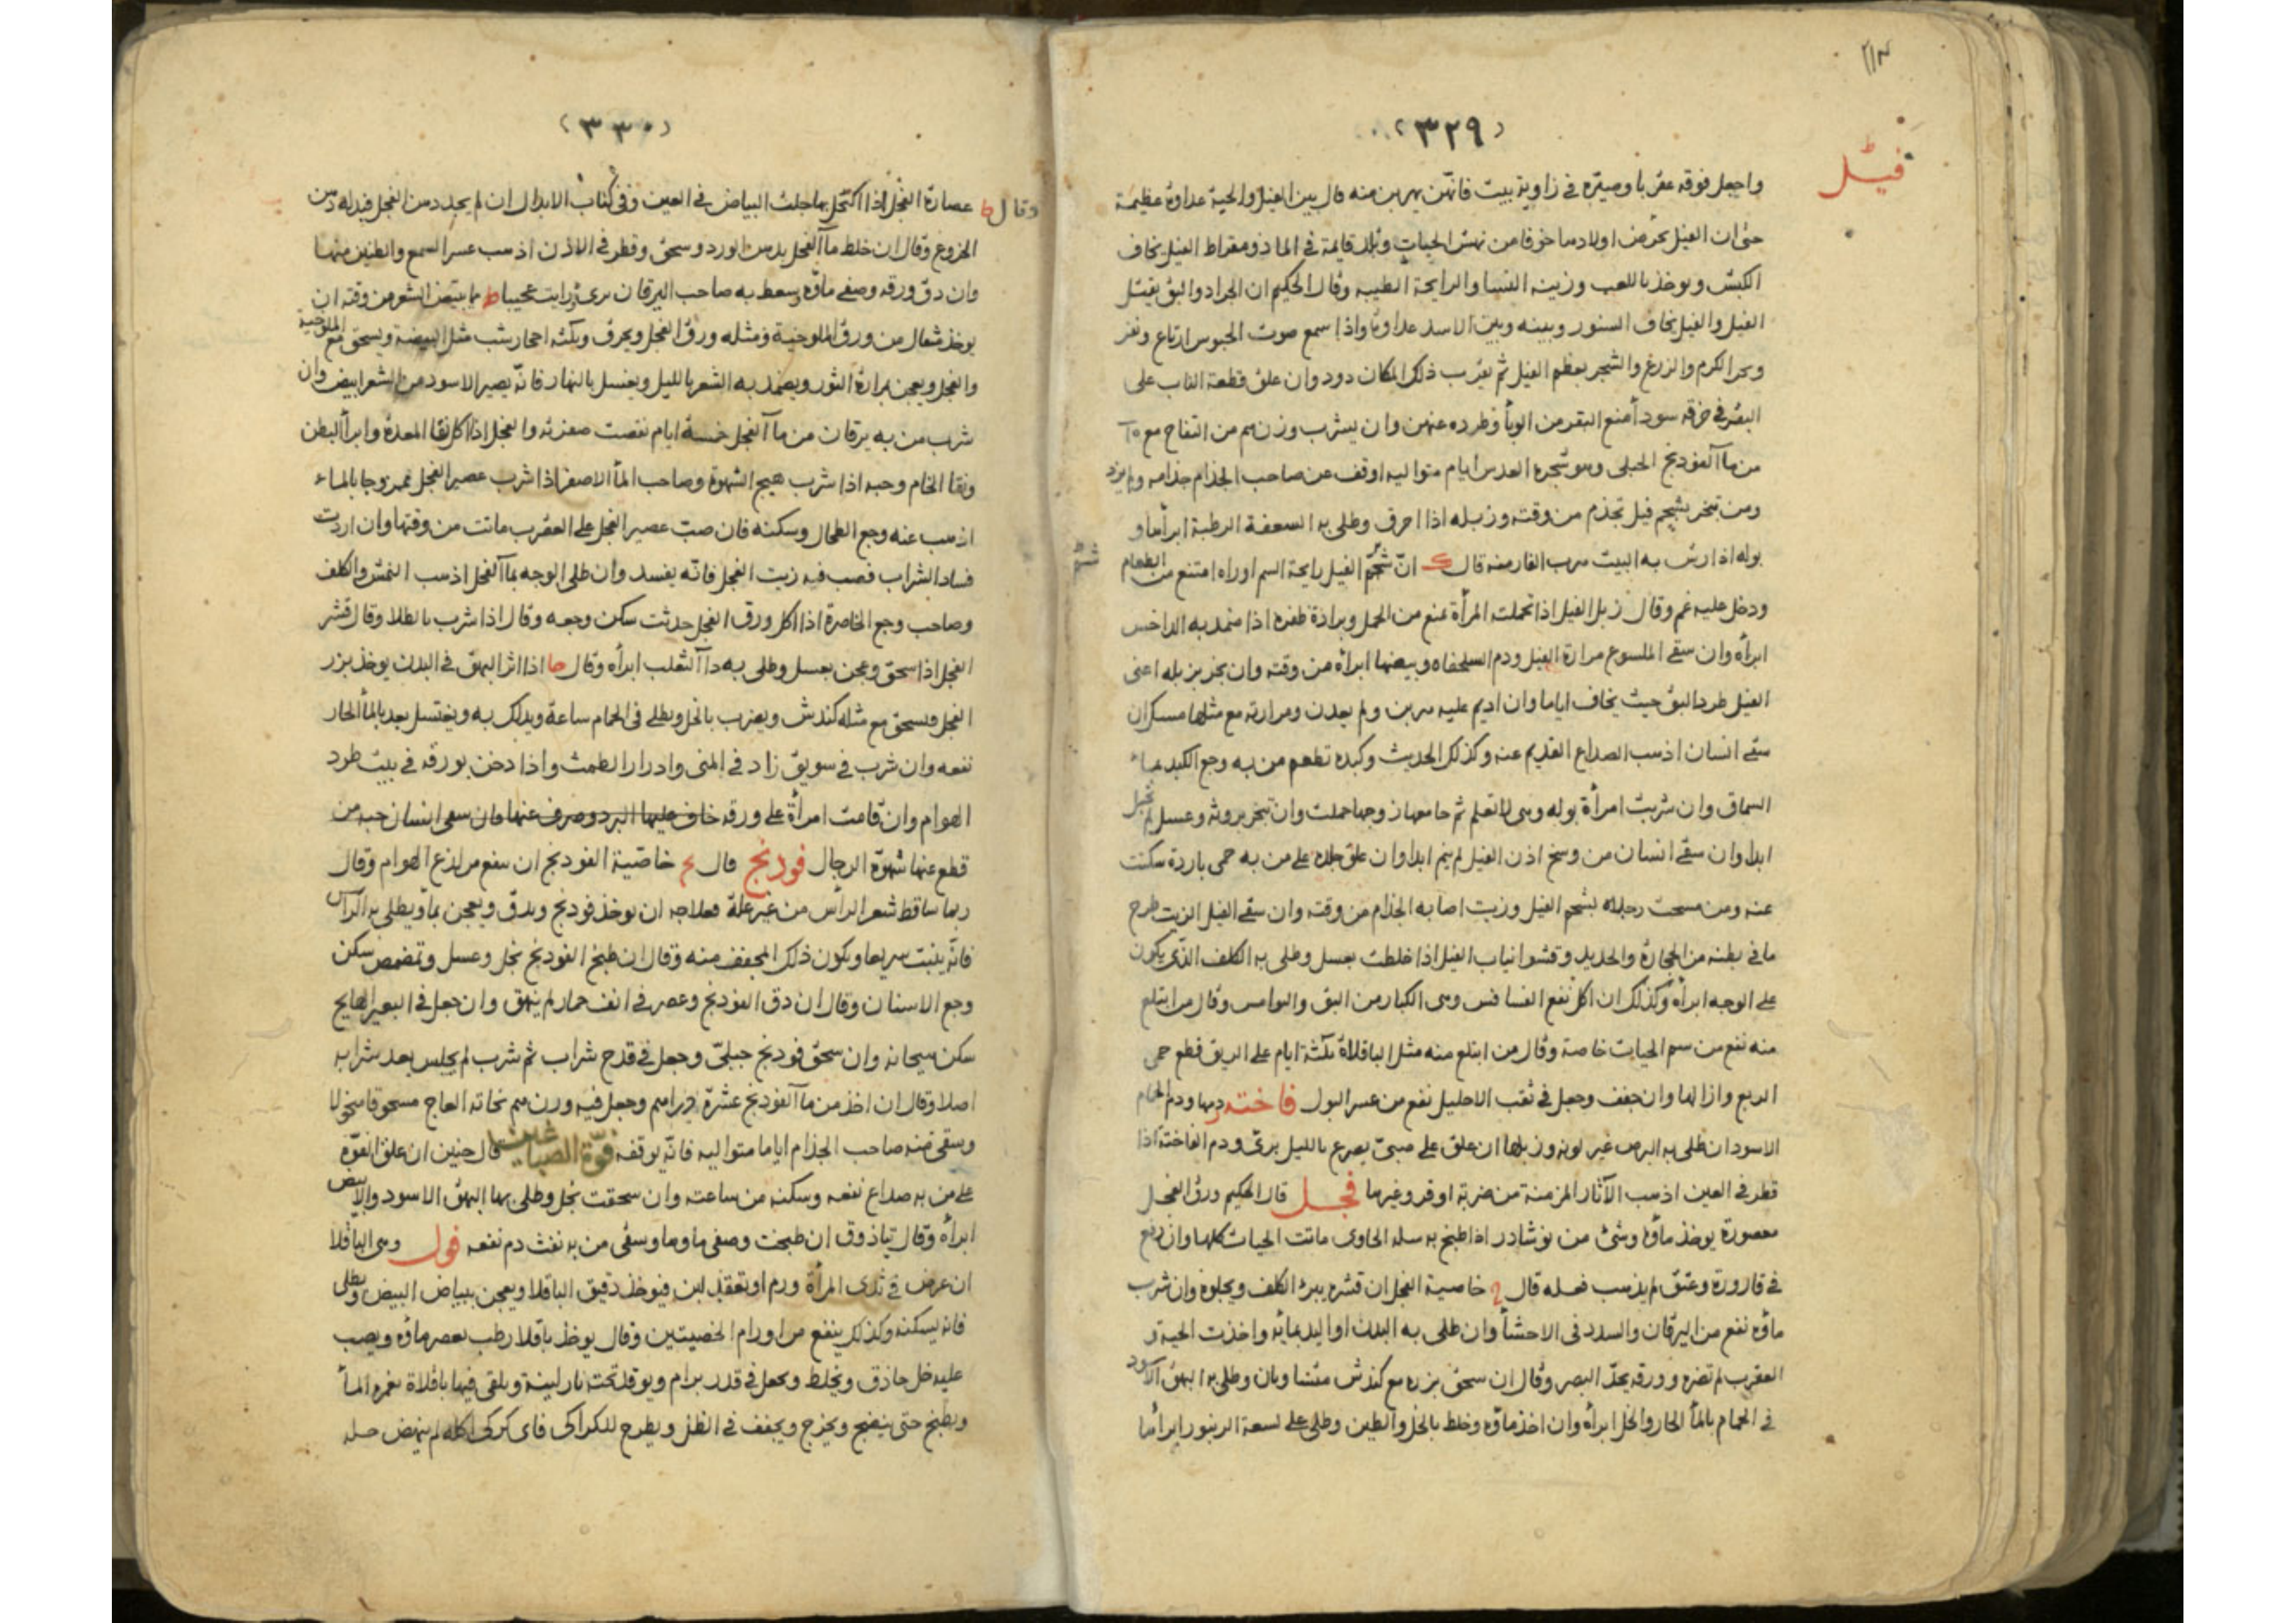 ٣٢٩
فيل
واجعل فوقه عقربا وصيره في زاوية بيت فانهن يهربن منه قال بين الفيل والحية عداوة عظيمة
حتى ان الفيل يحرض اولادها خوفا من نهش الحيات قايمة في الما ذومقراط الفيل يخاف
الكبش ويوخذ باللعب وزينة النسا والرايحة الطيبه وقال الحكيم ان الجراد والبق يقتل
الفيل والفيل يخاف السنور وبينه وبين الاسد عداوة واذا سمع صوت ارتاع ونفر
الكرم والزرع والشجر بعظم الفيل ثم يقرب ذلك المكان دود وان علق قطعة الناب على
البقر في خرقه سودا منع البقر من الوبأ وطرده عنهن وان يشرب وزن من التفاح مع
من مآ الفودنج الجبلى وهو شجره العدس ايام متواليه اوقف عن صاحب الجذام جذامه ولم يزد
ومن تبخر بشحم فيل تجذم من وقته وزبله اذا احرق وطلى به السعفة الرطبة ابرأها و
بوله اذا رش به البيت هرب الفار منه قال ان شم الفيل رايحة السم اوراه امتنع من الطعام
ودخل عليه غم وقال زبل الفيل اذا تحملت المرأة تمنع من الحمل وبرادة ظفره اذا ضمد به الداحس
ابرأه وان سقى الملسوع مرارة الفيل ودم السلحفاه وبيضها ابرأه من وقته وان بخر بزبله اعنى
الفيل طرد البق حيث يخاف اياما وان اديم عليه هربن ولم يعدن ومرارته مع مثلها سكران
سقى انسان اذهب الصداع القديم عنه وكذلك الحديث وكبده تطعم من به وجع الكبد بماء
السماق وان شربت امرأة بوله وهى لا تعلم ثم جامعها زوجها حملت وان تبخر بروثه وعسل لم تحبل
ابدا وان سقى انسان من وسخ اذن الفيل لم ينم ابدا وان علق جلده على من به حمى باردة سكنت
عنه ومن مسحت رجلاه بشحم الفيل وزيت اصابه الجذام من وقته وان سقى الفيل الزيت طرح
ما في بطنه من الحجارة والحديد وقشر انياب الفيل اذا خلطت بعسل وطلى به الكلف الذى يكون
على الوجه ابرأه وكذلك ان اكل نفع الفسافس وهى الكبار من البق والهوامس وقال من ابتلع
منه نفع من سم الحيات خاصة وقال من ابتلع منه مثل الباقلاة ثلثة ايام على الريق قطع حمى
الربع وازالها وان جفف وجعل في ثقب الاحليل نفع من عسر البول فاخته دمها ودم الحمام
الاسود ان طلى به البرص غير لونه وزبلها ان علق على صبى يصرع بالليل برئ ودم الفاخته اذا
قطر في العين اذهب الآثار المزمنة من ضربة او قروغيرها فجل قال الحكيم ورق الفجل
معصورة يوخذ ماؤه وشئ من نوشادر اذا طبخ به سله الحاوى ماتت الحيات كلها وان رفع
في قارورة وعتق لم يذهب فعله قال خاصية الفجل ان قشره يبرئ الكلف ويجلوه وان شرب
ماؤه نفع من اليرقان والسدد فى الاحشأ وان طلى به البدن او اليد بمائه واخذت الحية و
العقرب لم تضره وورقه يحد البصر وقال ان سحق بزره مع كندش وطلى به البهق الاسود
في الحمام بالمأ الحار والخل ابرأه وان اخذ ماؤه وخلط بالخل والطين وطلى على لسعة الزنبور ابرأها
٣٣٠
وقال عصارة الفجل اذا اكتحل بها جلت البياض في العين وفي كتاب الابدال ان لم يجد دهن الفجل فبدله دهن
الخروع وقال ان خلط مآ الفجل بدهن الورد وسحق وقطر في الاذن اذهب عسر السمع والطنين منها
وان دق ورقه وصفى ماؤه وسعط به صاحب اليرقان برئ ورايت عجيبا مما يبيض الشعر من وقته ان
يوخذ مثقال من ورق الملوخية ومثله ورق الفجل ويحرق وثلثه احجار يشب مثل البيضة ويسحق مع الملوخية
والفجل ويعجن بمرارة الثور ويضمد به الشعر بالليل ويغسل بالنهار فانه يصير الاسود من الشعر ابيض وان
شرب من به يرقان من مآ الفجل خمسة ايام نقصت صفرته والفجل اذا اكل نقا المعدة وابرأ البطن
ونقا الخام وحبه اذا شرب هيج الشهوة وصاحب المأ الاصفر اذا شرب عصير الفجل ممزوجا بالماء
اذهب عنه وجع الطحال وسكنه فان صب عصير الفجل على العقرب ماتت من وقتها وان اردت
فساد الشراب فصب فيه زيت الفجل فانه يفسد وان طلى الوجه بمآ الفجل اذهب النمش والكلف
وصاحب وجع الخاصرة اذا اكل ورق الفجل حدثت سكن وجعه وقال اذا شرب بالطلا وقال قشر
الفجل اذا سحق وعجن بعسل وطلى به دآ الثعلب ابرأه وقال اذا اثر البهق في البدن يوخذ بزر
الفجل ويسحق مع مثله كندش ويضرب بالخل ويطلى فى الحمام ساعة ويدلك به ويغتسل بعد بالمأ الحار
نفعه وان شرب في سويق زاد في المنى وادرار الطمث واذا دخن بورقه في بيت طرد
الهوام وان قامت امرأة على ورقه خاف عليها البرد وصرف عنها فان سقى انسان حبه من
قطع عنها شهوة الرجال فودنج قال خاصية الفودنج ان ينفع من لذع الهوام وقال
ربما ساقط شعر الرأس من غير علة فعلاجه ان يوخذ فودنج ويدق ويعجن بمأ ويطلى به الرأس
فانه ينبت سريعا ويكون ذلك المجفف منه وقال ان طبخ الفودنج بخل وعسل وتمضمض سكن
وجع الاسنان وقال ان دق الفودنج وعصر في انف حمار لم ينهق وان جعل في البعير الهايج
سكن هيجانه وان سحق فودنج جبلى وجعل في قدح شراب ثم شرب لم يجلس بعد شرابه
اصلا وقال ان اخذ من مآ الفودنج عشرة دراهم وجعل فيه وزن نحاته العاج مسحوقا منخولا
وسقى منه صاحب الجذام اياما متواليه فانه يوقفه فوّة الصباغين قال حنين ان علق الفوة
على من به صداع نفعه وسكنه من ساعته وان سحقت بخل وطلى بها البهق الاسود والابيض
ابرأه وقال تياذوق ان طبخت وصفى ماوها وسقى من به نفث دم نفعه فول وهى الباقلا
ان عرض في ثدى المرأة ورم او تعقد لبن فيوخذ دقيق الباقلا ويعجن ببياض البيض وطلى
فانه يسكنه وكذلك ينفع من اورام الخصيتين وقال يوخذ باقلا رطب يعصر ماؤه ويصب
عليه خل حاذق ويخلط ويجعل في قدر برام ويوقد تحته نار لينة ويلقى فيها باقلاة يغمره المأ
ويطبخ حتى ينضج ويخرج ويجفف في الظل ويطرح للكراكى فاى كركى اكله لم ينهض